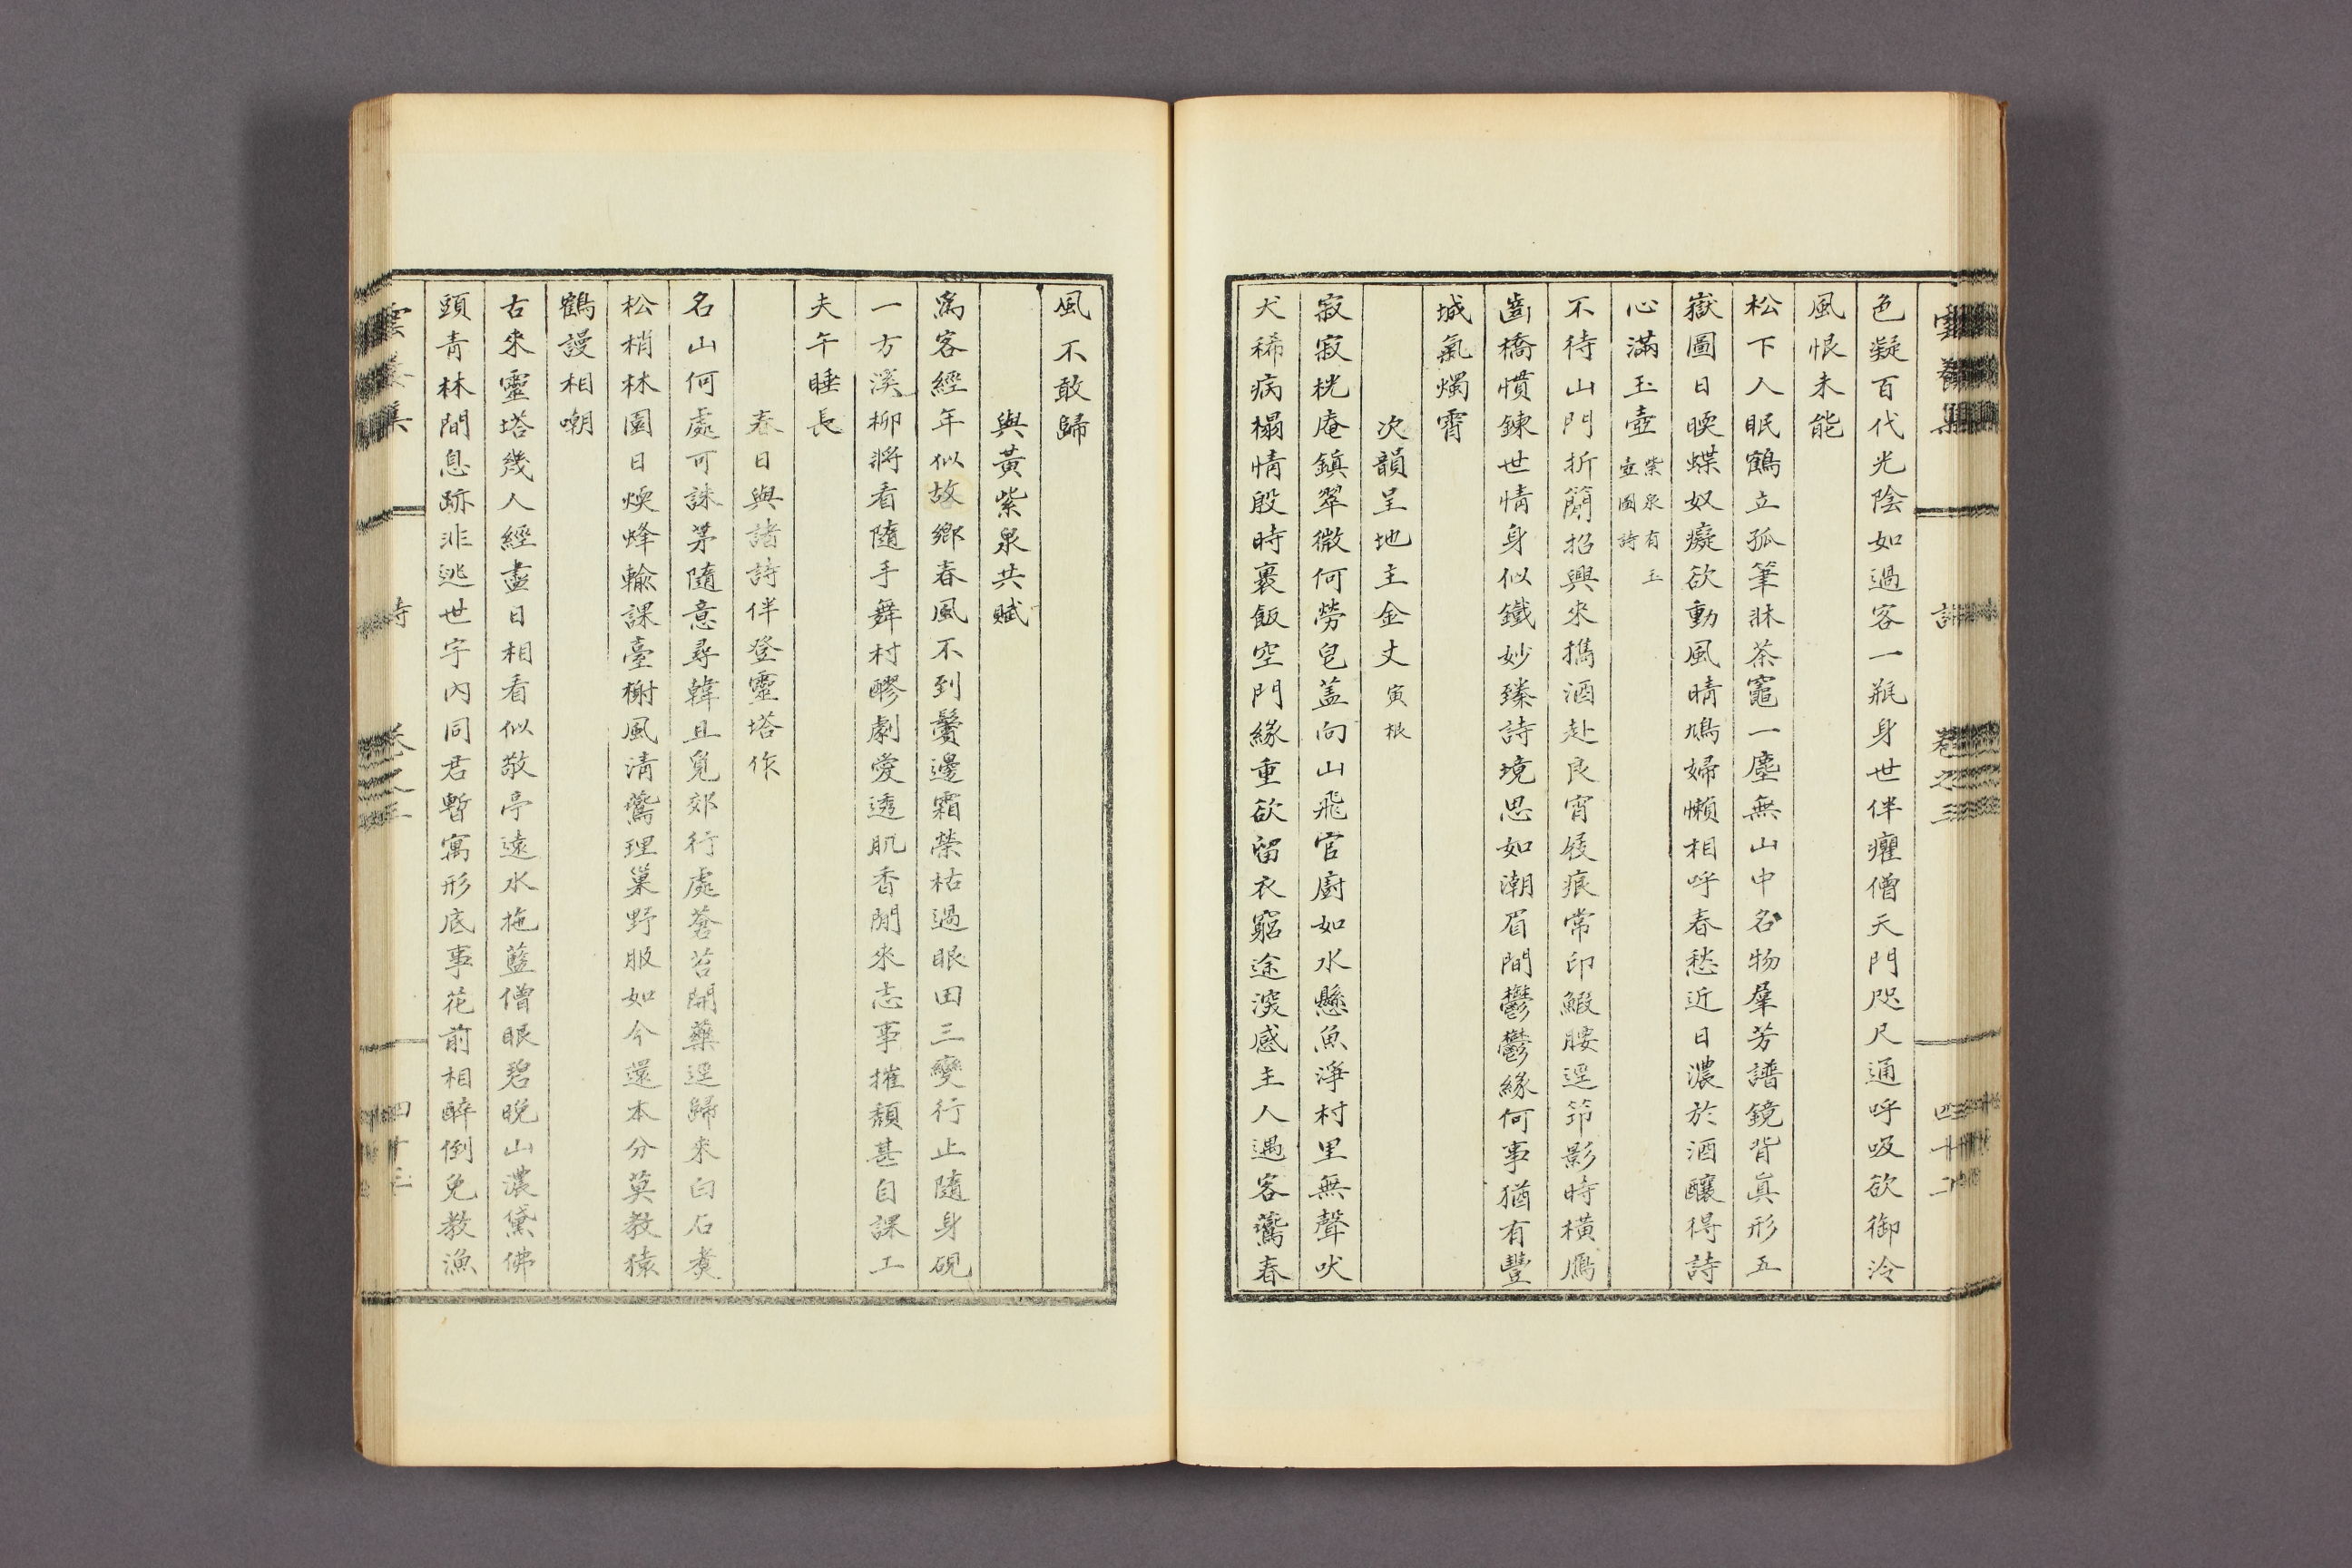 色凝百代光陰如過客一瓶身世伴癯僧天門咫尺通呼吸欲御泠
風恨未能
松下人眠鶴立孤筆牀茶竈一塵無山中名物羣芳譜鏡背眞形五
嶽圖日暎蝶奴癡欲動風晴鳩婦懶相呼春愁近日濃於酒釀得詩
心滿玉壺
紫泉有玉
壺圖詩
不待山門折簡招興來攜酒赴良宵屐痕常印鰕腰逕筇影時橫鴈
齒橋慣鍊世情身似鐵妙臻詩境思如潮眉間鬱鬱緣何事猶有豐
城氣燭霄
次韻呈地主金丈
寅根
寂寂桄庵鎮翠微何勞皂蓋向山飛官廚如水懸魚淨村里無聲吠
犬稀病榻情殷時裹飯空門緣重欲留衣窮途深感主人遇客鶯春
風不敢歸
與黃紫泉共賦
爲客經年似故鄉春風不到鬢邊霜榮枯過眼田三變行止隨身硯
一方溪柳將看隨手舞村醪劇愛透肌香閒來志事摧頹甚自課工
夫午睡長
春日與諸詩伴登靈塔作
名山何處可誅茅隨意尋韓且覓郊行處蒼苔開藥逕歸來白石煑
松梢林園日煗烽輸課臺榭風淸鶯理巢野服如今還本分莫教猿
鶴謾相嘲
古來靈塔幾人經盡日相看似敬亭遠水拖藍僧眼碧晚山濃黛佛
頭靑林間息跡非逃世宇內同君暫寓形底事花前相醉倒免教漁
詩
卷之三
四十二